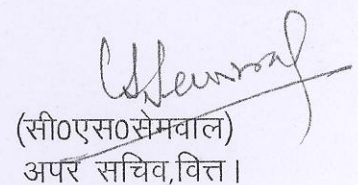 (सी0एस0सेमवाल)
अपर सचिव,वित्त।